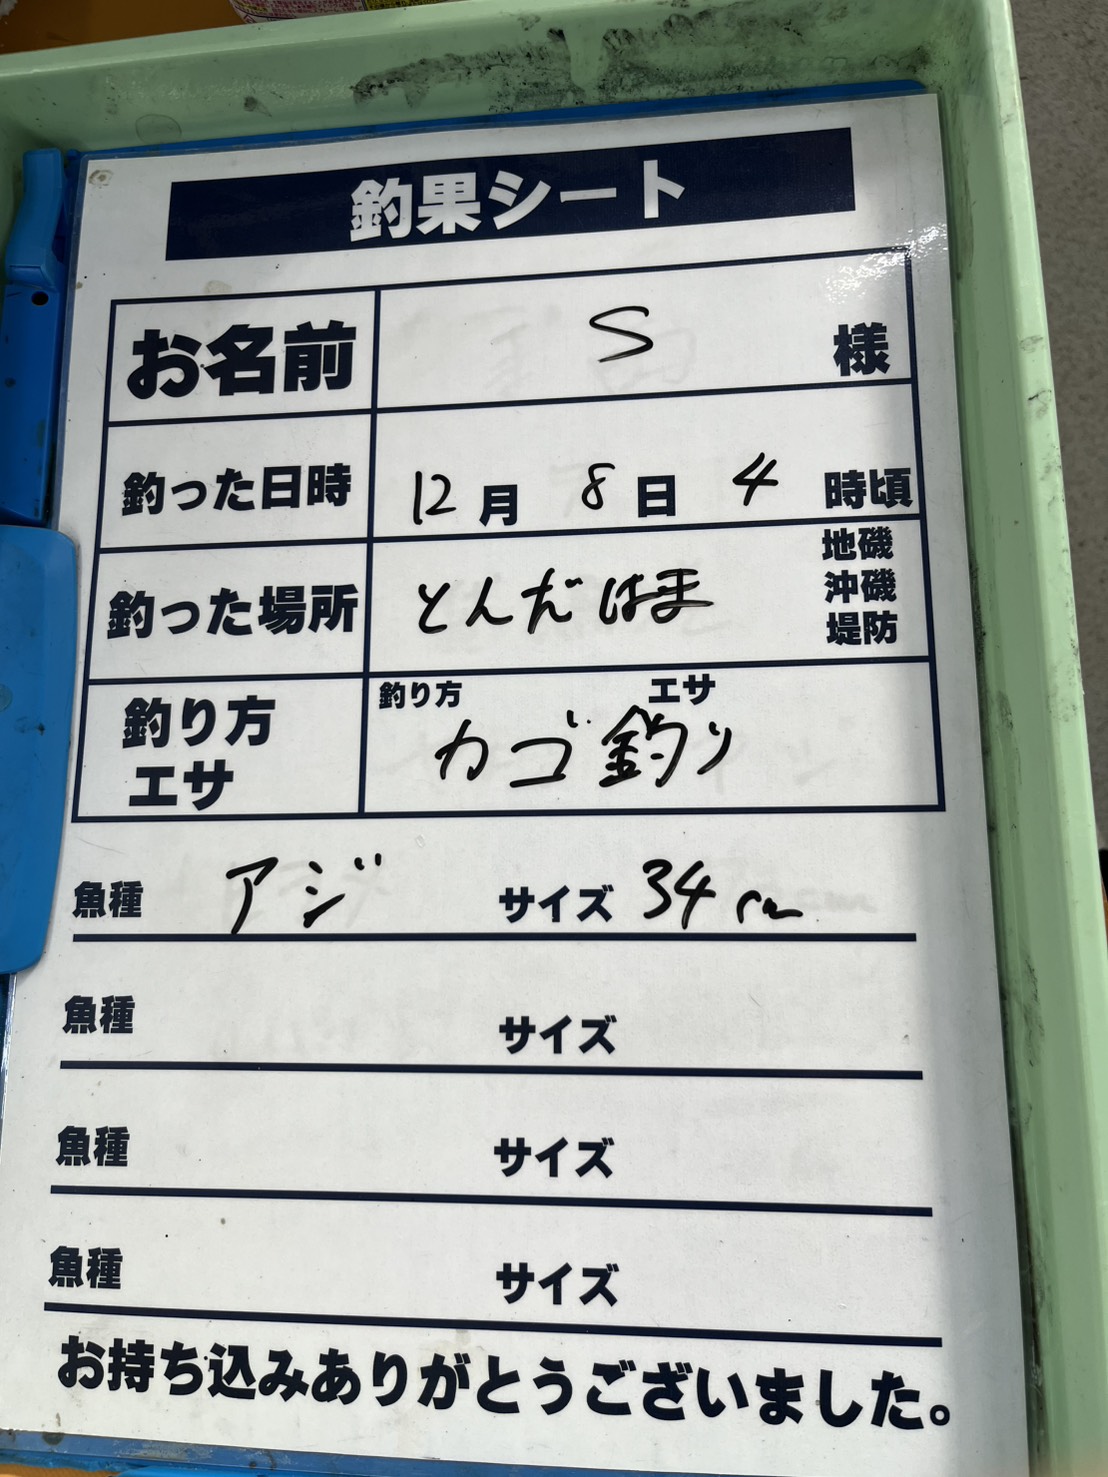 釣果シート
お名前 S 様
釣った日時 12月 8日 4 時頃
釣った場所 とんだはま 地磯 沖磯 堤防
釣り方 エサ
釣り方 エサ
カゴ釣り
魚種 アジ サイズ 34cm
魚種 サイズ
魚種 サイズ
魚種 サイズ
お持ち込みありがとうございました。